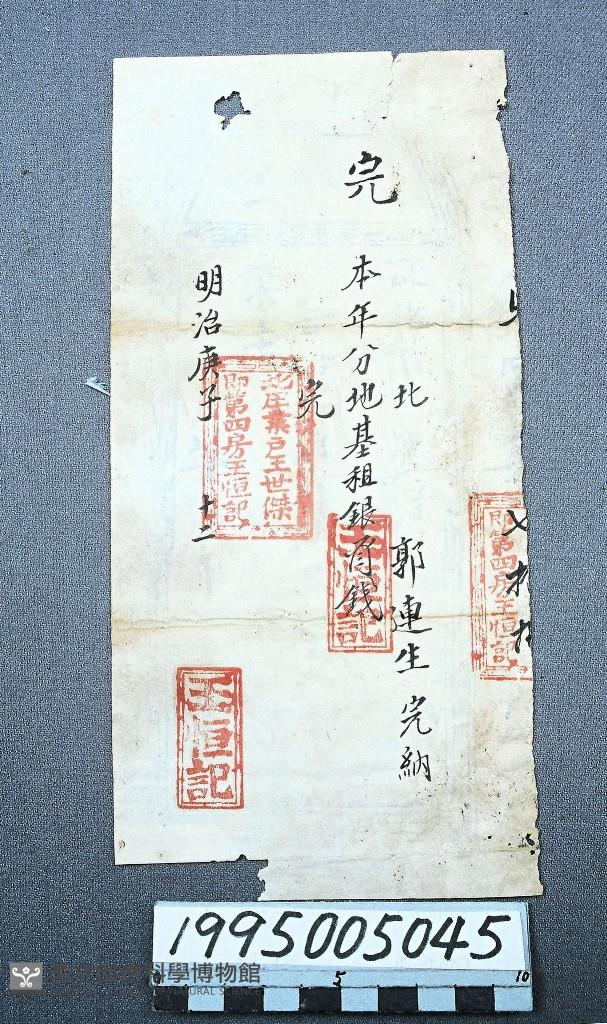 北 郭連生 完納
完 本年分地基租銀 錢
完
明治庚子 十二
業戶王世傑
即第四房王恒記
王恒記
王恒記
即第四房王恒記
1995005045
5
10
科學博物館